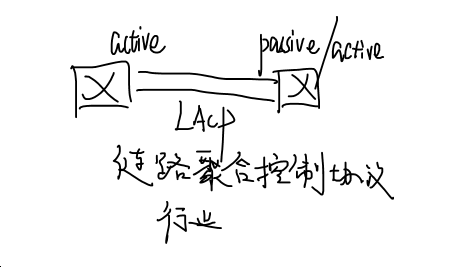 active passive/active
LACP
链路聚合控制协议
行业